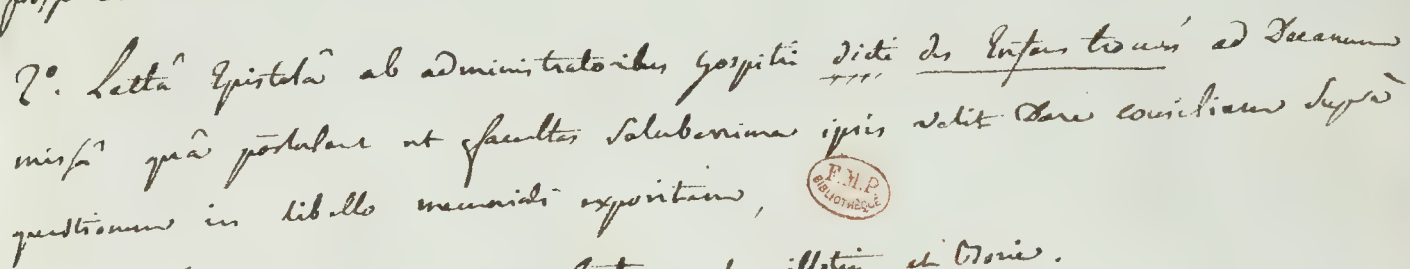 2°. Lectâ Epistolâ ab administratoribus hospitii dicti des Enfans trouvés ad Decanum
missâ quâ postulant ut facultas saluberrima ipsis velit dare consilium suprà
quaestionem in libello memoriali expositam,
F.M.P.
BIBLIOTHÈQUE
et